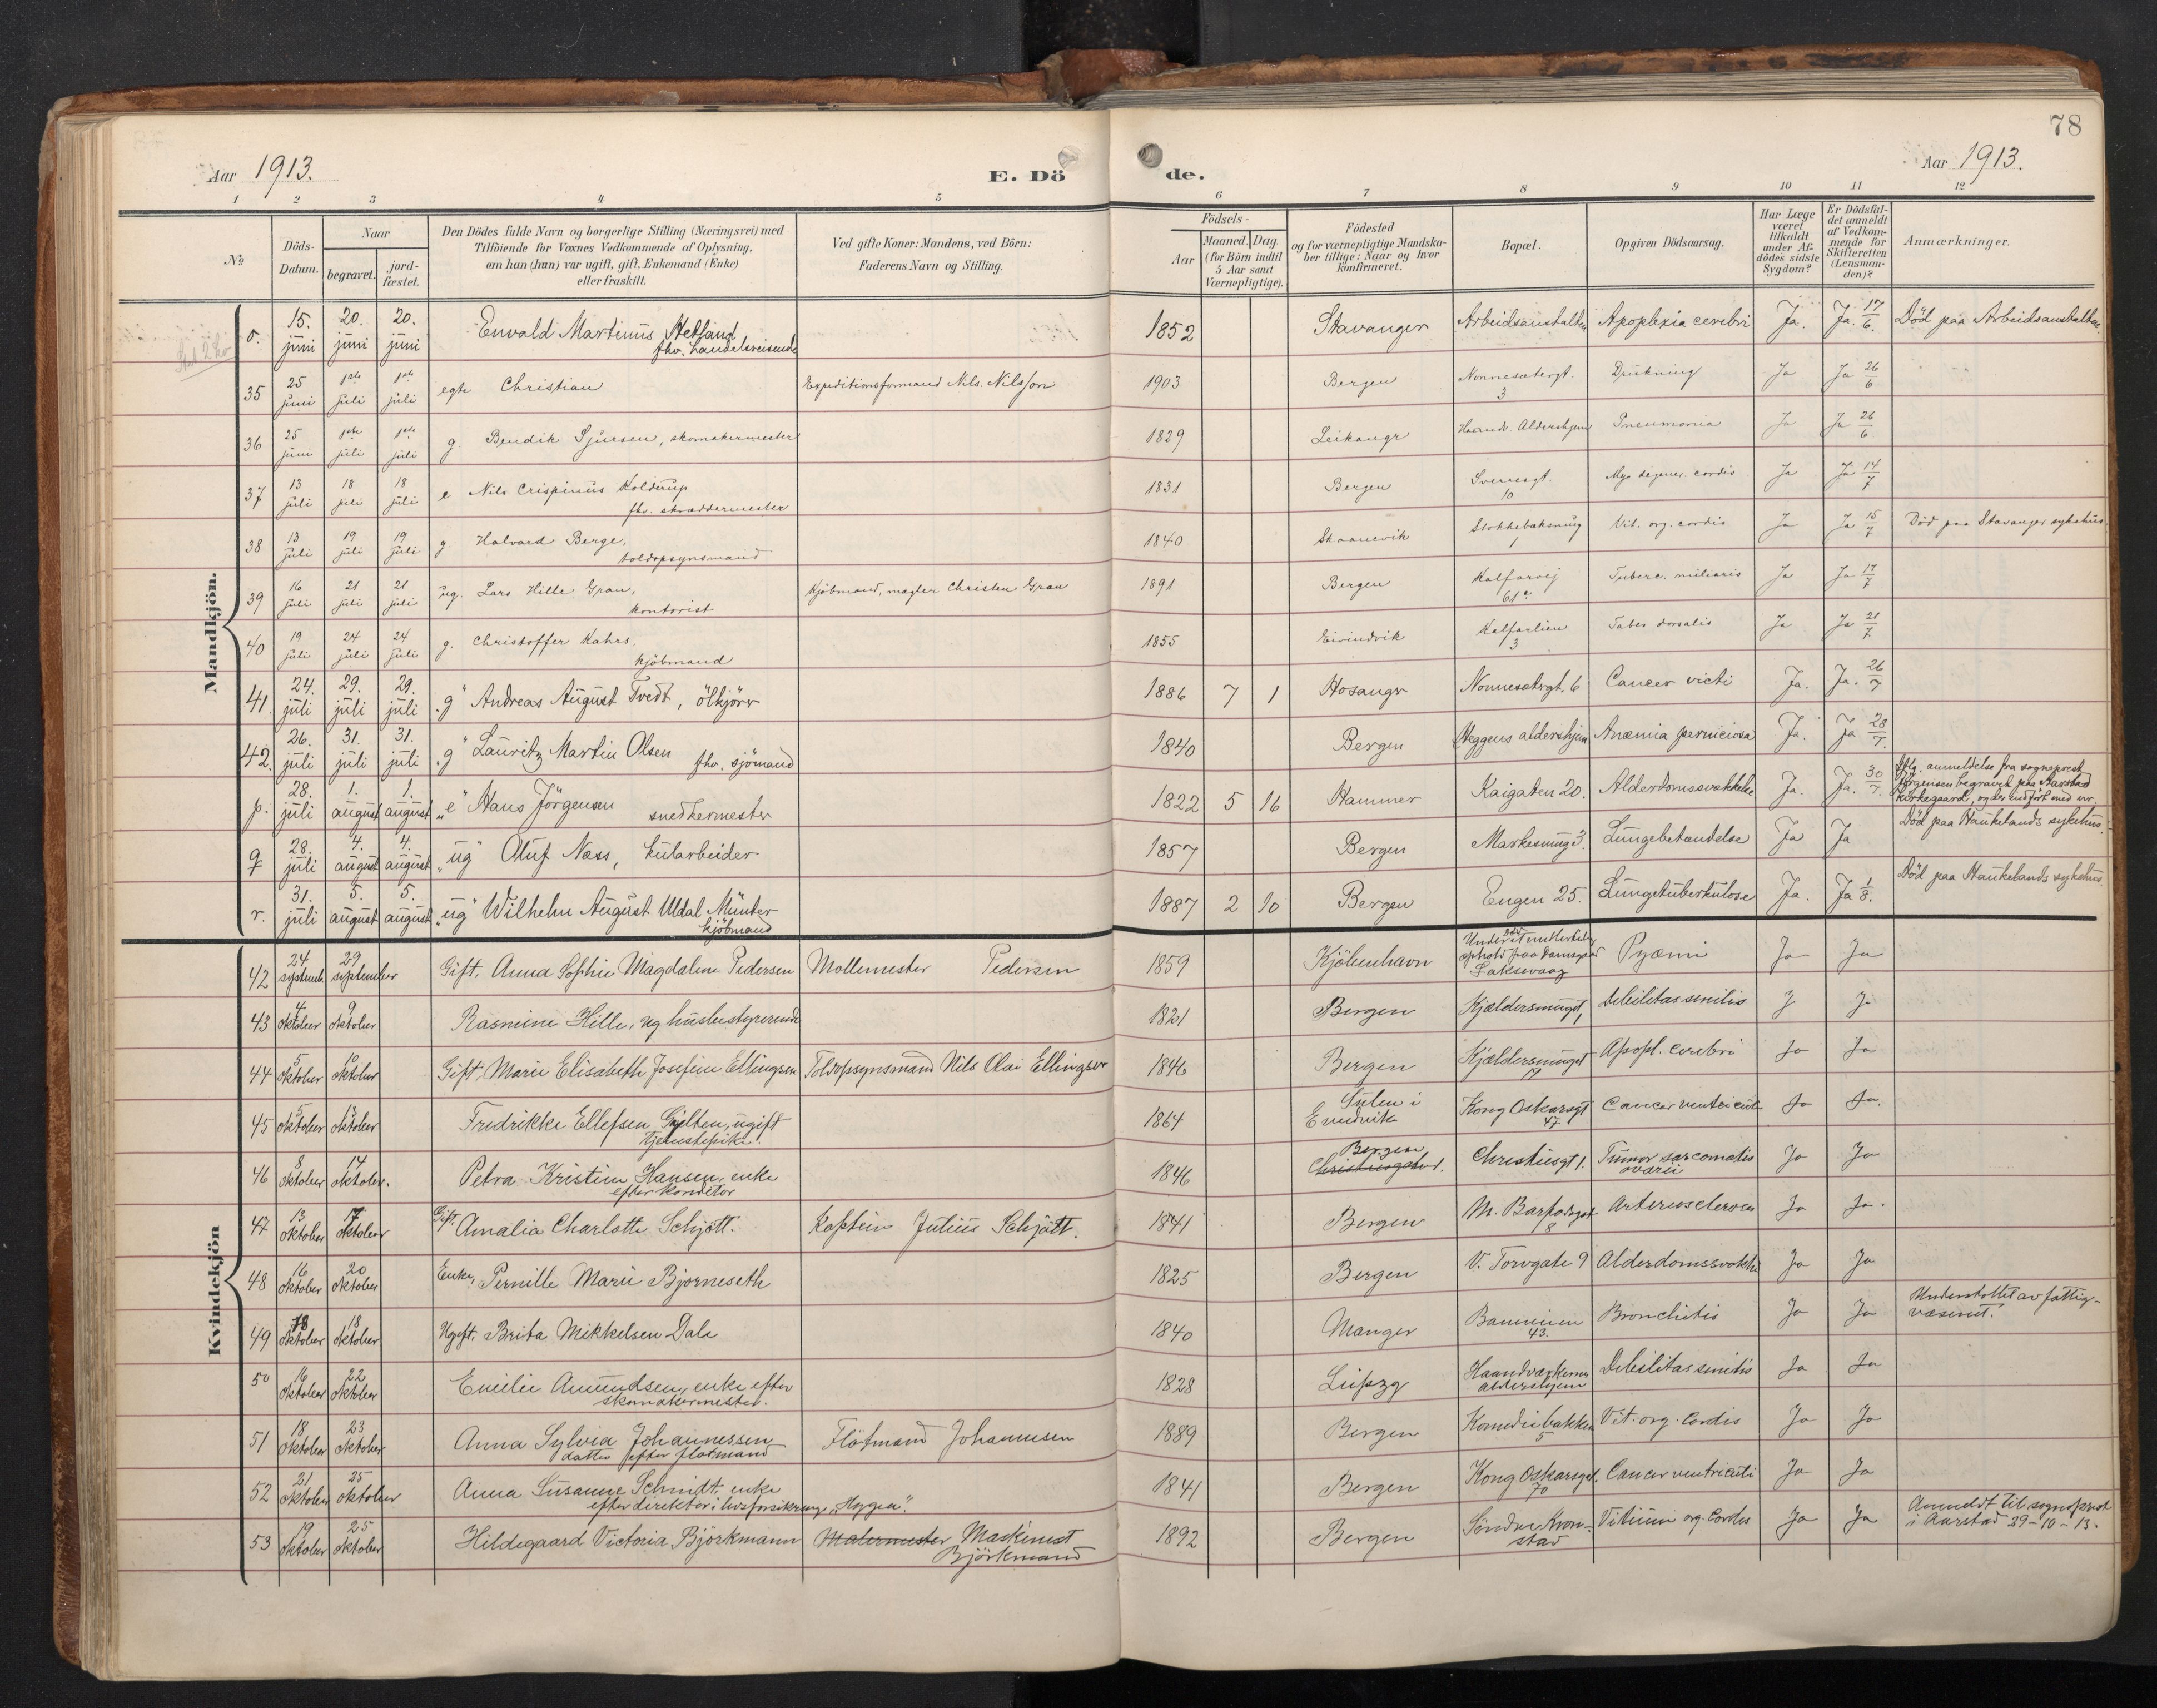 78
Aar 1913.
E. Dö
de.
Aar 1913.
1 2 3 4 5 6 7 8 9 10 11 12
No
Döds-
Datum.
Naar
begravet.
jord-
fæstet.
Den Dödes fulde Navn og borgerlige Stilling (Næringsvei) med
Tilföiende for Voxnes Vedkommende af Oplysning,
om han (hun) var ugift, gift, Enkemand (Enke)
eller fraskilt.
Ved gifte Koner: Mandens, ved Börn:
Faderens Navn og Stilling.
Födsels-
Aar
Maaned. Dag.
(for Börn indtil
5 Aar samt
Værnepligtige).
Födested
og for værnepligtige Mandska-
ber tillige: Naar og hvor
konfirmeret.
Bopæl.
Opgiven Dödsaarsag.
Har Læge
været
tilkaldt
under Af-
dödes sidste
Sygdom?
Er Dödsfal-
det anmeldt
af Vedkom-
mende for
Skifteretten
(Lensman-
den)?
Anmærkninger.
Mandkjön.
o. 15. juni 20. juni 20. juni Envald Martinus Hetland fhv. handelsreisende 1852 Stavanger Arbeidsanstalten Apoplexia cerebri Ja. Ja. 17/6. Död paa Arbeidsanstalten.
35 25 juni 1ste juli 1ste juli egte Christian Expeditionsformand Nils Nilsson 1903 Bergen Nonnesætergt. 3 Drukning Ja Ja 26/6
36 25 juni 1ste juli 1ste juli g. Bendik Sjursen, skomakermester 1829 Leikangr Haandv. Aldershjem Pneumonia Ja Ja 26/6.
37 13 juli 18 juli 18 juli e Nils Crispinus Kolderup fhv. skræddermester 1831 Bergen Sverresgt. 10 Myo degener. cordis Ja Ja 14/7
38 13 juli 19 juli 19 juli g. Halvard Berge, toldopsynsmand 1840 Skaanevik 1 Vit. org. cordis Ja Ja 15/7 Död paa Stavanger sykehus.
39 16 juli 21 juli 21 juli ug. Lars Hille Gran, kontorist Kjöbmand, mægler Christen Gran 1891 Bergen Kalfarvej 61 a Tuberc. miliaris Ja Ja 17/7
40 19 juli 24 juli 24 juli g. Christoffer Kahrs, kjöbmand 1855 Eivindvik Kalfarlien 3 Tabes dorsalis Ja Ja 21/7
41. 24. juli 29. juli 29. juli "g" Andreas August Tvedt, ölkjörer 1886 7 1 Hosangr Nonnesætergt. 6 Cancer victi Ja. Ja. 26/7
42. 26. juli 31. juli 31. juli "g" Lauritz Martin Olsen fhv. sjömand 1840 Bergen Heggens aldershjem Anæmia perniciosa Ja. Ja 28/7.
p. 28. juli 1. august 1. august "e" Hans Jörgensen snedkermester 1822 5 16 Hammer Kaigaten 20. Alderdomssvakhet Ja. Ja. 30/7. Iflg. anmeldelse fra sogneprest
Jörgensen begravet paa Aarstad
kirkegaard, og der indfört med nr.
q 28. juli 4. august 4. august "ug" Oluf Næss, kularbeider 1857 Bergen Markesmug 3. Lungebetændelse Ja Ja Död paa Haukelands sykehus.
r. 31. juli 5. august 5. august "ug" Wilhelm August Uldal Münter kjöbmand 1887 2 10 Bergen Engen 25. Lungetuberkulose Ja. Ja 1/8. Död paa Haukelands sykehus.
Kvindekjön
42 24 septemb. 29 september Gift, Anna Sophie Magdalene Pedersen Møllemester Pedersen 1859 Kjöbenhavn Under et midlertidig ophold paa Damsgaard Laksevaag Pyæmi Ja Ja
43 4 oktober 9 oktober Rasmine Hille, ug husbestyrerinde 1821 Bergen Kjældersmuget 1 Debilitas senilis J J
44 5 oktober 10 oktober Gift, Marie Elisabeth Josefine Ellingsen Toldopsynsmand Nils Olai Ellingsen 1846 Bergen Kjældersmuget 17 Apopl. cerebri Ja Ja
45 5 oktober oktober Fredrikke Ellefsen Gylten, ugift tjenestepike. 1864 Sulen i Evindvik Kong Oskarsgt 47. Cancer ventriculi Ja Ja.
46 8 oktober 14 oktober. Petra Kristine Hansen, enke efter konditor 1846 Bergen Christiesgate 1. Christiesgt 1. Tumor sarcomatis ovarii Ja Ja
47 13 oktober 17 oktober Gift. Amalia Charlotte Schjött. Kaptein Julius Schjött. 1841 Bergen 8 Arteriosclerose Ja Ja.
48 16 oktober 20 oktober Enke, Pernille Marie Bjorneseth 1825 Bergen V. Torvgate 9 Alderdomssvakhe Ja Ja
49 oktober 18 oktober Ugift. Brita Mikkelsen Dale 1840 Manger 43. Bronchitis Ja Ja Understöttet av fattig-
væsenet.
50 16 oktober 22 oktober Emilie Amundsen, enke efter skomakermester. 1828 Leipzg Haandværkernes aldershjem Debilitas senilis Ja Ja
51 18 oktober 23 oktober Anna Sylvia Johannessen datter efter flötmand Flötmand Johannesen 1889 Bergen Komediebakken 5 Vit. org. cordis Ja Ja
52 21 oktober 25 oktober Anna Susanne Schmidt, enke efter direktör i livsforsikrings "Hygea". 1841 Bergen Kong Oskarsgt. 70 Cancer ventriculi Ja Ja
53 19 oktober 25 oktober Hildegaard Victoria Björkmann Malermester Maskinist Björkmand 1892 Bergen Söndre Kronstad Vitium org. cordis Ja Ja Anmeldt til sogneprest
i Aarstad 29-10-13.